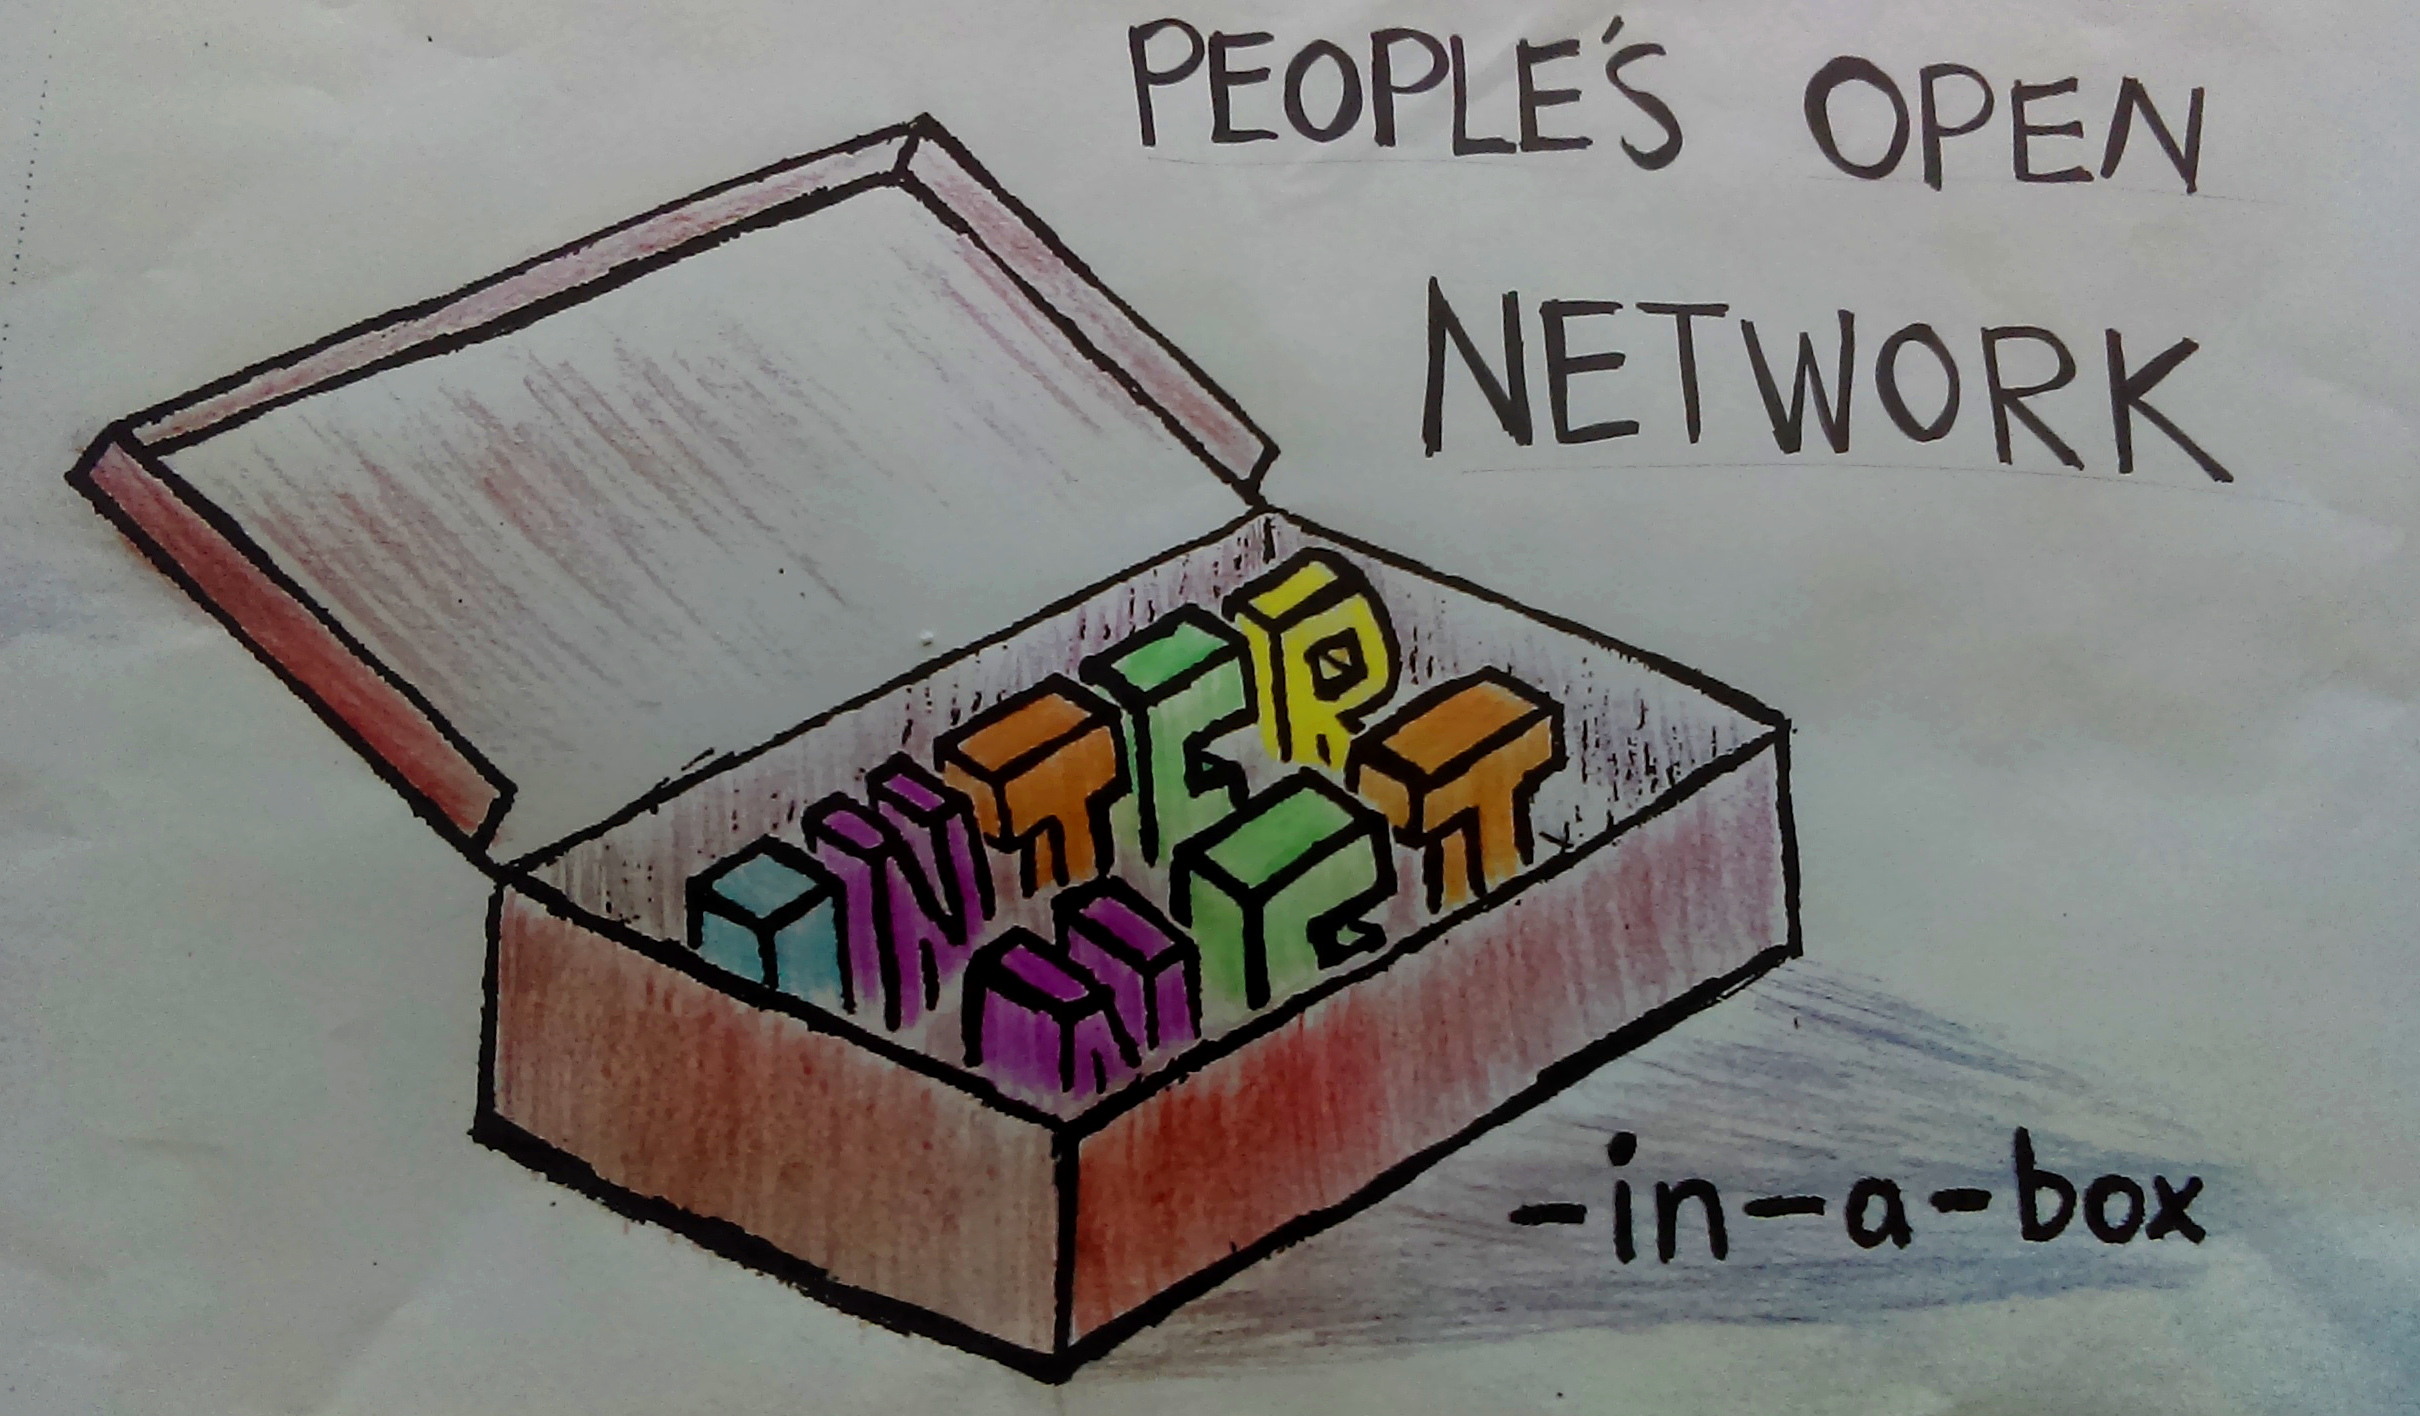 PEOPLE'S OPEN
NETWORK
INTER
NET
-in-a-box